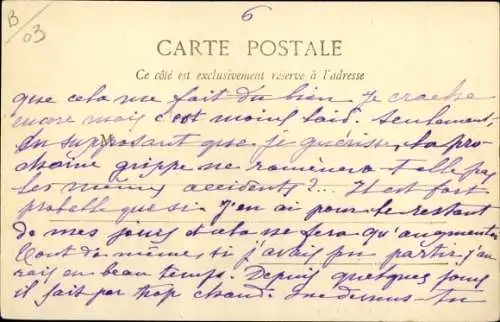 6
B/03
CARTE POSTALE
Ce côté est exclusivement réservé à l'adresse
que cela me fait du bien. Je crache
encore mais c'est moins laid. Seulement,
M
en supposant que je guérisse, la pro-
chaine grippe ne ramènera-t-elle pas
les mêmes accidents?... Il est fort
probable que si. J'en ai pour le restant
de mes jours et cela ne fera qu'augmenter
Tout de même, si j'avais pu partir, j'au
rais eu beau temps. Depuis quelques jours
il fait par trop chaud. tu